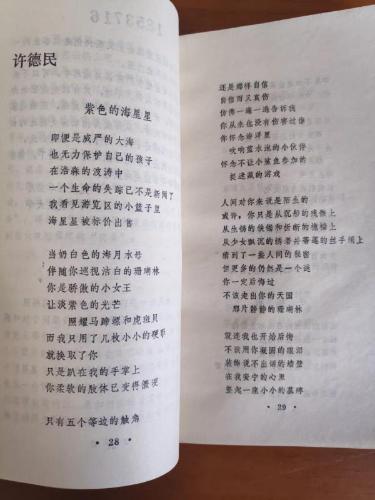 许德民
紫色的海星星
即便是威严的大海
也无力保护自己的孩子
在浩淼的波涛中
一个生命的失踪已不是新闻了
我看见游览区的小篮子里
海星星被标价出售
当奶白色的海月水母
伴随你巡视洁白的珊瑚林
你是骄傲的小女王
让淡紫色的光芒
照耀马蹄螺和虎斑贝
而我只用了几枚小小的硬币
就换取了你
只是趴在我的手掌上
你柔软的肢体已变得僵硬
只有五个等边的触角
·28·
还是那样自信
自信而又真挚
仿佛一遍一遍告诉我
你从来也没有伤害过谁
你怀念海洋里
吹响蓝水泡的小伙伴
怀念不让小鲨鱼参加的
捉迷藏的游戏
人间对你来说是陌生的
或许，你只是从沉船的残骸上
从生锈的铁锚和折断的桅樯上
从少女飘沉的绣着并蒂莲的丝手绢上
猜到了一些人间的秘密
但更多的仍然是一个谜
你一定后悔过
不该走出你的天国
那片静静的珊瑚林
就连我也开始后悔
不该用你凝固的眼泪
装饰说不出话的墙壁
在我安宁的心里
竖起一座小小的墓碑
·29·